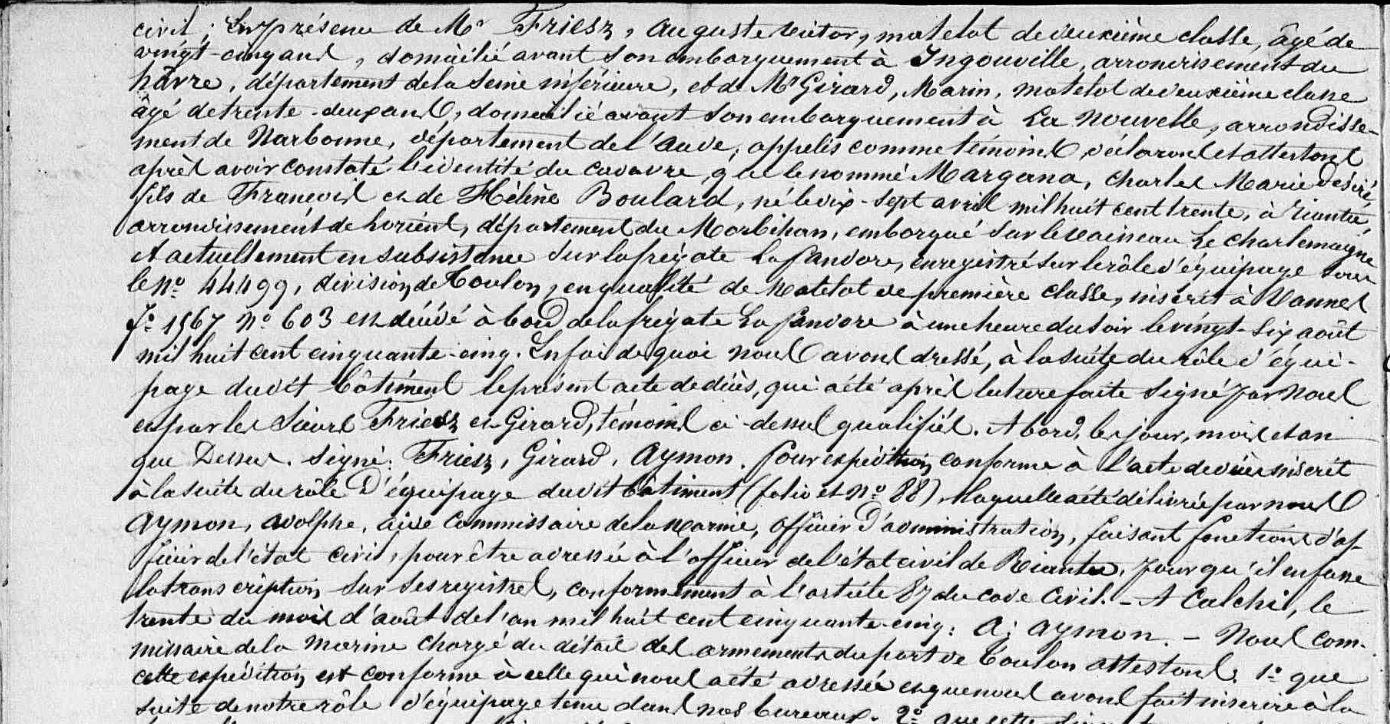 civil; En présence de Mr Friesz, Auguste Victor, matelot de deuxième classe, âgé de
vingt-cinq ans, domicilié avant son embarquement à Ingouville, arrondissement du
havre, département de la Seine inférieure, et de Mr Girard, Marin, matelot de deuxième classe
âgé de trente-deux ans, domicilié avant son embarquement à La Nouvelle, arrondisse-
ment de Narbonne, département de l'Aude, appelés comme témoins, déclarons et attestons
après avoir constaté l'identité du cadavre, que le nommé Margana, Charles Marie Désiré,
fils de François et de Hélène Boulard, né le dix-sept avril mil huit cent trente, à Riantec,
arrondissement de Lorient, département du Morbihan, embarqué sur le vaisseau Le Charlemagne
et actuellement en subsistance sur la frégate La Pandore, enregistré sur le rôle d'équipage sous
le No 44499, division de Toulon, en qualité de Matelot de première classe, inscrit à Vannes
fo 1567 No 603 est décédé à bord de la frégate La Pandore à une heure du soir le vingt-six août
mil huit cent cinquante-cinq. En foi de quoi nous avons dressé, à la suite du rôle d'équi-
page dudit bâtiment le présent acte de décès, qui a été après lecture faite signé par nous
et par les Sieurs Friesz et Girard, témoins ci-dessus qualifiés. A bord, les jour, mois et an
que Dessus. Signé: Friesz, Girard, Aymon. Pour expédition conforme à l'acte de décès inscrit
à la suite du rôle D'équipage dudit bâtiment (folio et No 88) laquelle a été délivrée par nous
Aymon, Adolphe, aide Commissaire de la marine, officier D'administration, faisant fonctions d'of-
ficier de l'état civil, pour être adressée à l'officier de l'état civil de Riantec, pour qu'il en fasse
la transcription sur ses registres, conformément à l'article 87 du code Civil. - A Calchi, le
trente du mois d'août de l'an mil huit cent cinquante-cinq: A: Aymon. - Nous Com-
missaire de la Marine chargé du détail des armements du port de Toulon attestons, 1o que
cette expédition est conforme à celle qui nous a été adressée et que nous avons fait inscrire à la
suite de notre rôle d'équipage tenu dans nos bureaux. 2o que cette